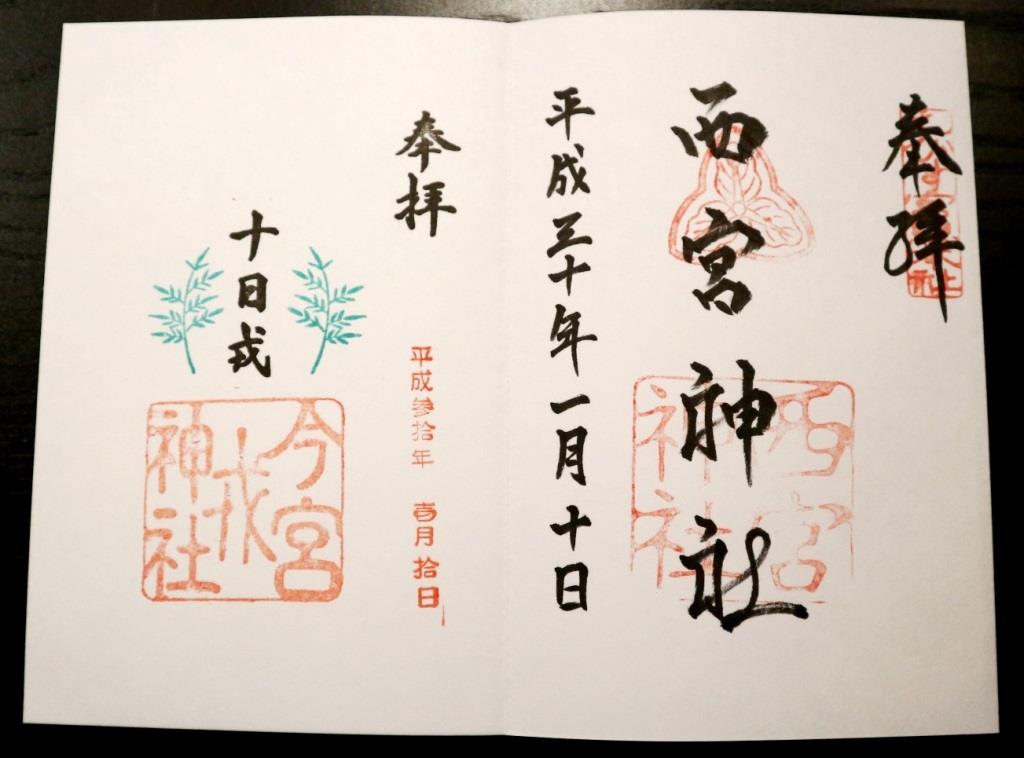 奉拝
西宮神社
西宮神社
平成三十年一月十日
奉拝
平成参拾年 壹月拾日
十日戎
今宮戎神社